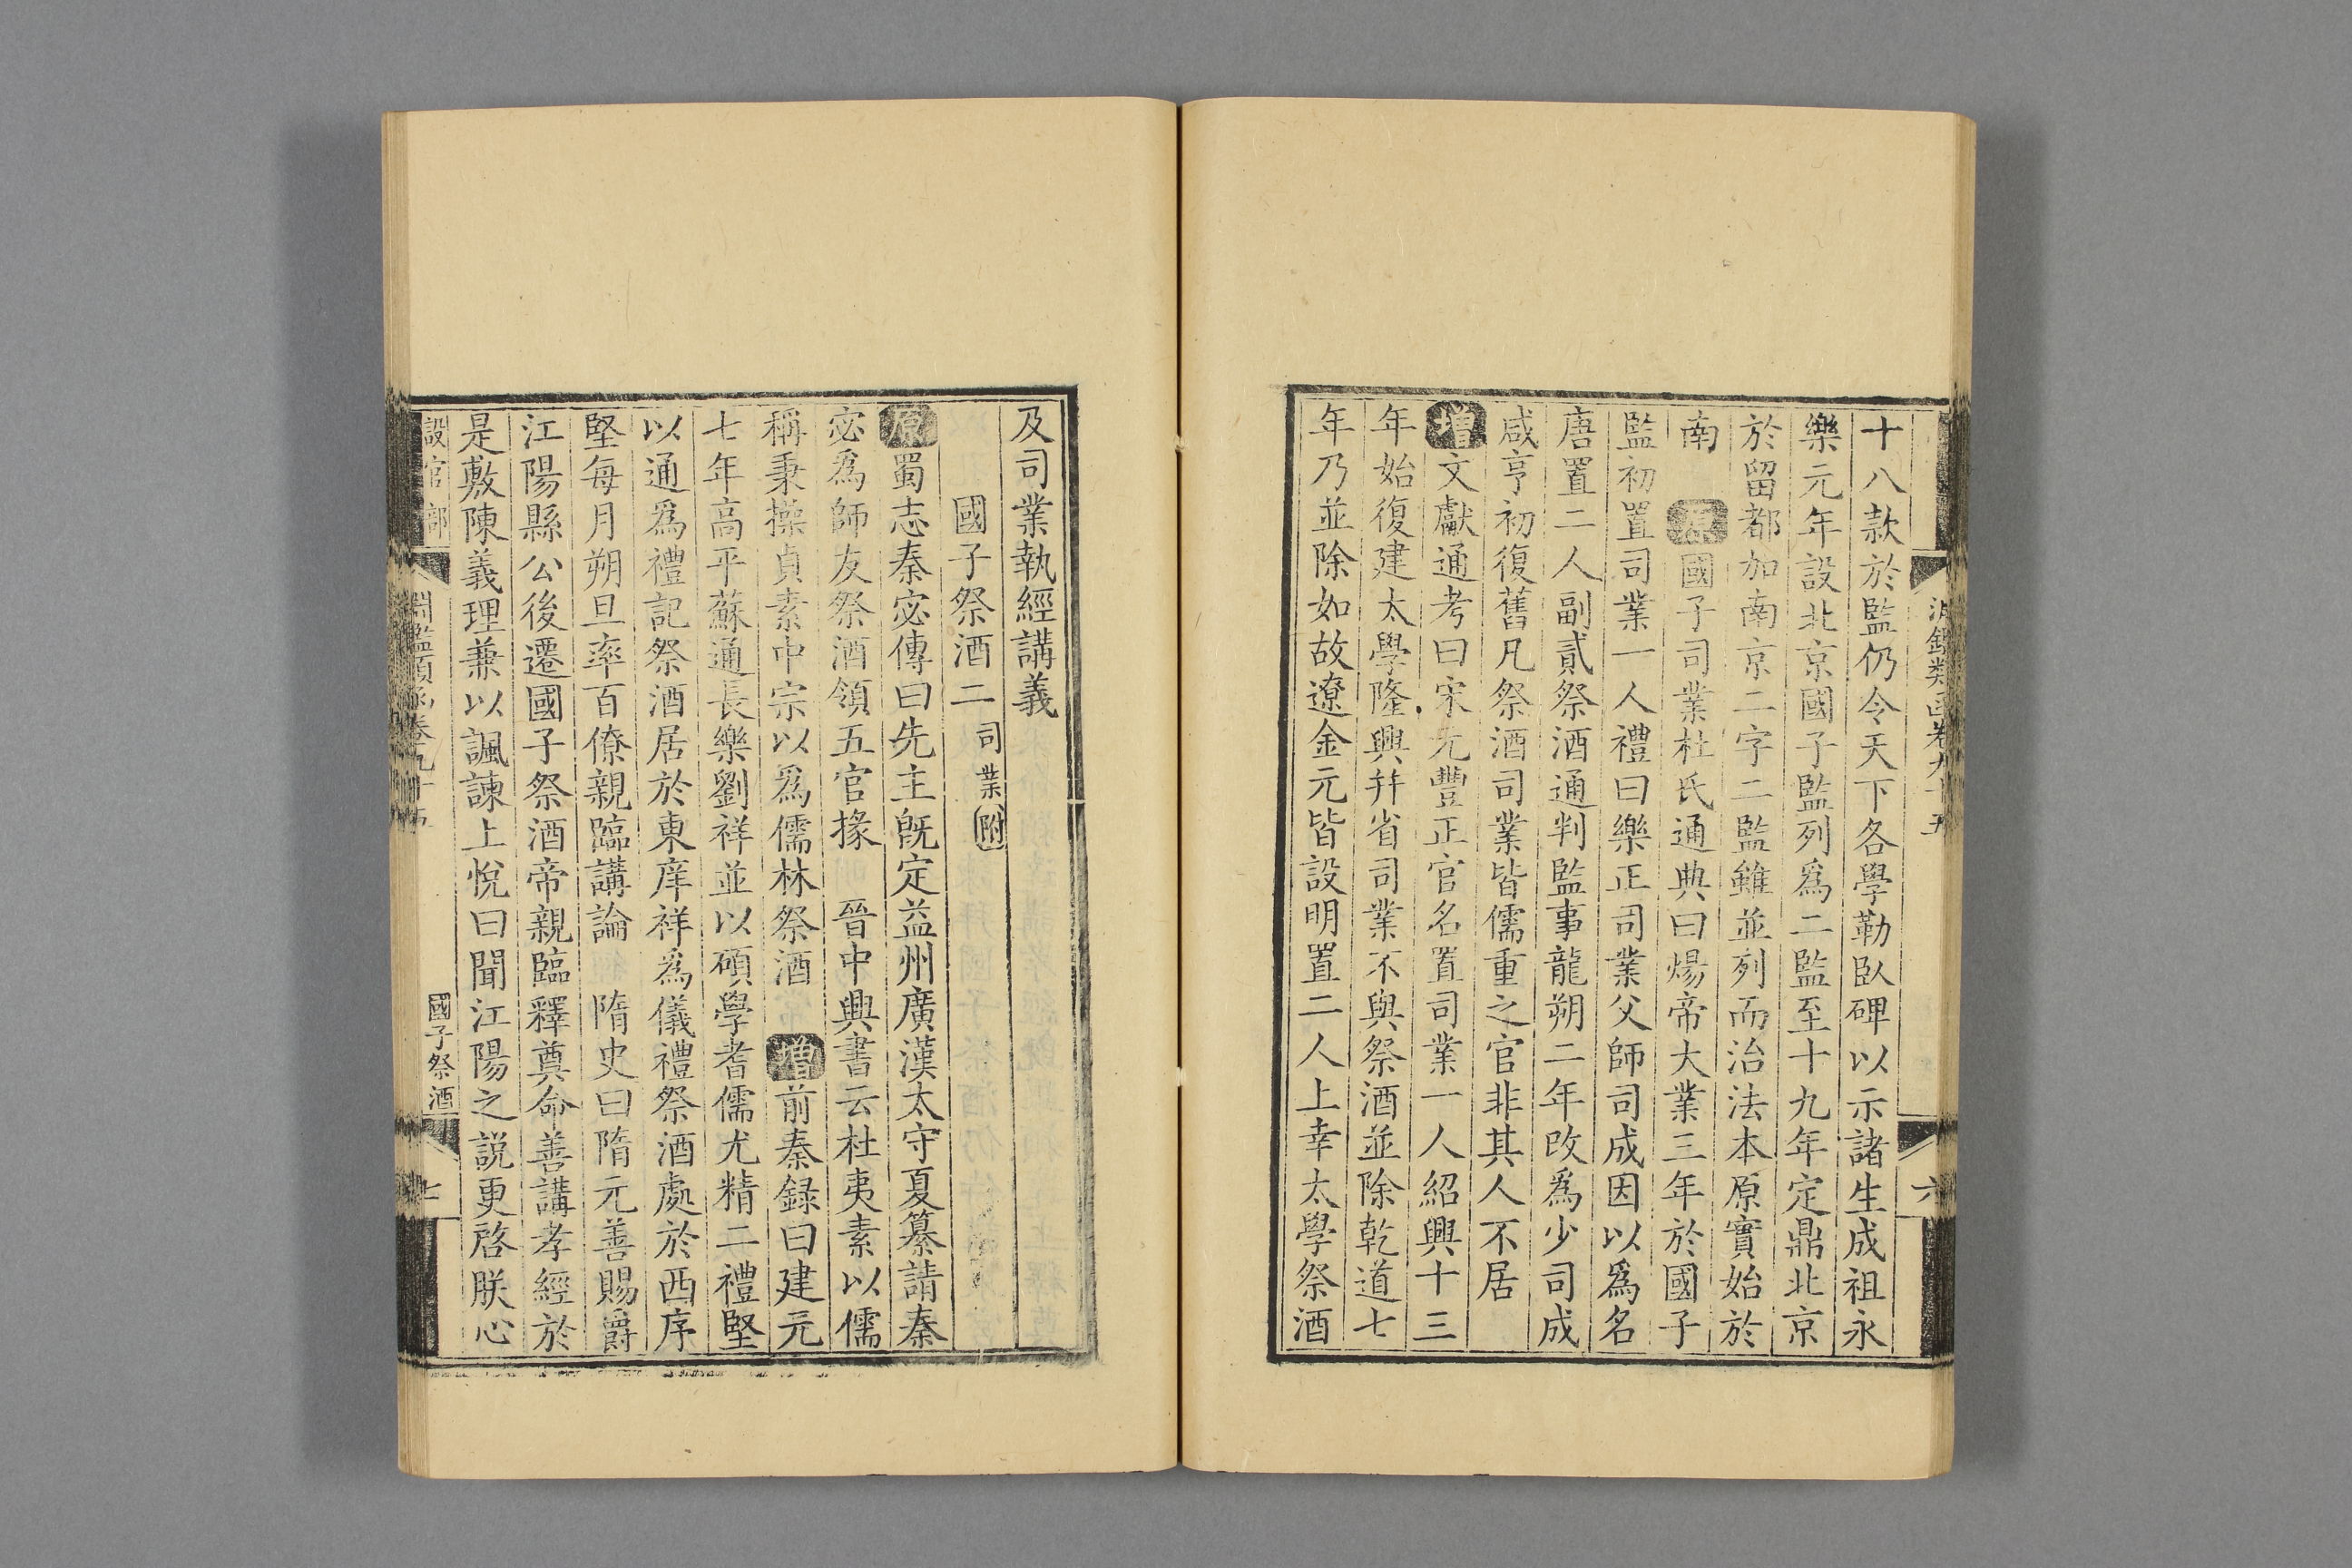 十八款於監仍令天下各學勒臥碑以示諸生成祖永
樂元年設北京國子監列爲二監至十九年定鼎北京
於留都加南京二字二監雖並列而治法本原實始於
南 原國子司業杜氏通典曰煬帝大業三年於國子
監初置司業一人禮曰樂正司業父師司成因以爲名
唐置二人副貳祭酒通判監事龍朔二年改爲少司成
咸亨初復舊凡祭酒司業皆儒重之官非其人不居
增文獻通考曰宋元豐正官名置司業一人紹興十三
年始復建太學隆興幷省司業不與祭酒並除乾道七
年乃並除如故遼金元皆設明置二人上幸太學祭酒
六
及司業執經講義
國子祭酒二司業附
原蜀志秦宓傳曰先主既定益州廣漢太守夏纂請秦
宓爲師友祭酒領五官掾 晉中興書云杜夷素以儒
稱秉操貞素中宗以爲儒林祭酒 增前秦録曰建元
七年高平蘇通長樂劉祥並以碩學耆儒尤精二禮堅
以通爲禮記祭酒居於東庠祥爲儀禮祭酒處於西序
堅每月朔旦率百僚親臨講論 隋史曰隋元善賜爵
江陽縣公後遷國子祭酒帝親臨釋奠命善講孝經於
是敷陳義理兼以諷諫上悅曰聞江陽之説更啓朕心
設官部
國子祭酒
七